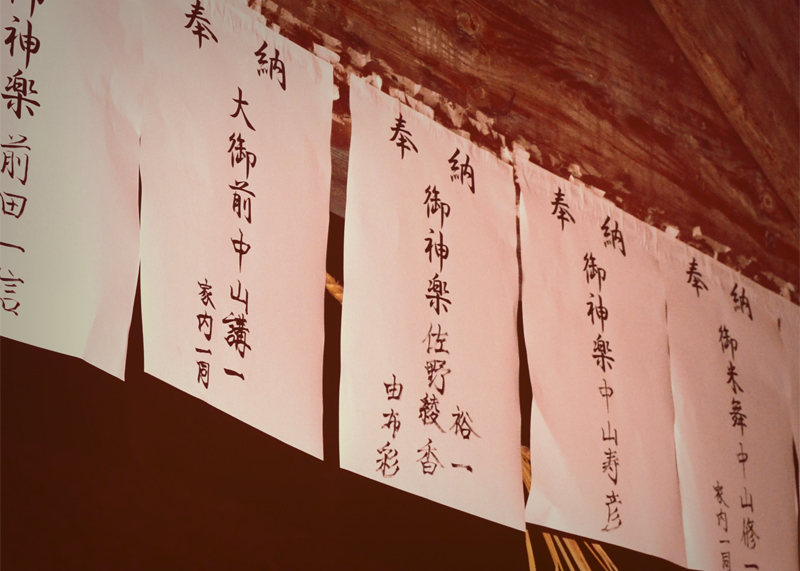 御神楽前田一信
奉納
大御前中山講一
家内一同
奉納
裕一
御神楽佐野綾香
由布彩
奉納
御神楽中山寿彦
奉納
御米舞中山修一
家内一同